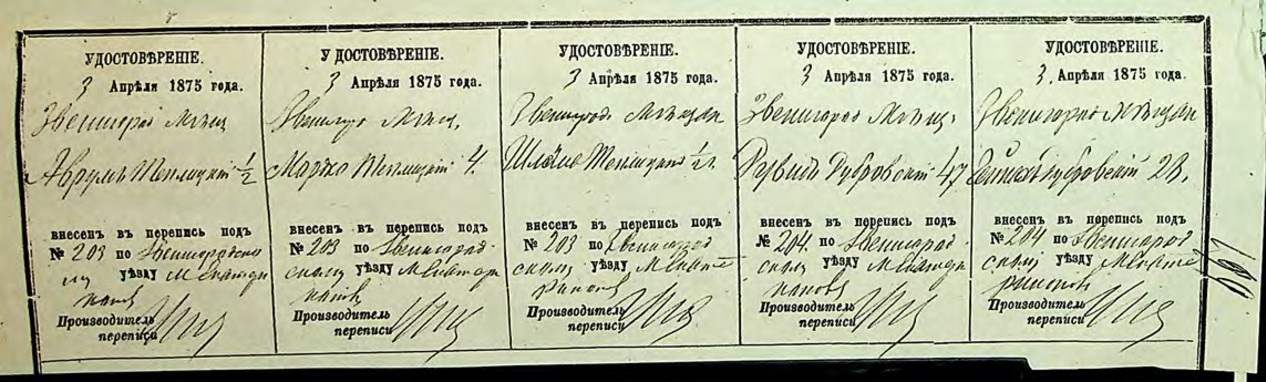 УДОСТОВѢРЕНІЕ.
3 Апрѣля 1875 года.
Звенигород Мѣщ
Аврумъ Теплицкій 1/2
внесенъ въ перепись подъ
№ 203 по Звенигородско
му уѣзду М Екатери
напол
Производитель
переписи
У ДОСТОВѢРЕНІЕ.
3 Апрѣля 1875 года.
Звенигор Мѣщ.
Марко Теплицкій 4.
внесенъ въ перепись подъ
№ 203 по Звенигород
скому уѣзду М Екатери
напол
Производитель
переписи
УДОСТОВѢРЕНІЕ.
3 Апрѣля 1875 года.
Звенигород Мѣщан
Шлёма Теплицкій
внесенъ въ перепись подъ
№ 203 по Звенигород
скому уѣзду М Екате
ринопол
Производитель
переписи
УДОСТОВѢРЕНІЕ.
3 Апрѣля 1875 года.
Звенигород Мѣщ.
Рувинъ Дубровскій 47
внесенъ въ перепись подъ
№ 204. по Звенигород
скому уѣзду М Екатери
напол
Производитель
переписи
УДОСТОВѢРЕНІЕ.
3. Апрѣля 1875 года.
Звенигород Мѣщан
Дубровскій 23.
внесенъ въ перепись подъ
№ 204 по Звенигород
скому уѣзду М Екате
ринопол
Производитель
переписи